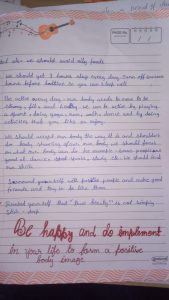 we should avoid oily foods
we should get 8 hours sleep every day. Turn off screens
hours before bedtime so you can sleep well
Be active every day - our body needs to move to be
strong, fit and healthy. we can be active by playing
a sport, doing yoga, walks, dance and by doing
activities that you like or enjoy
We should accept our body the way it is and shouldn't
do body shaming of our own body we should focus
on what our body can do for example: some people are
good at dance, at sports, study etc. We should find
our skill
Surround yourself with positive people and make good
friends and try to be like them
Remind yourself that "true beauty" is not simply
skin-deep
Be happy and do implement
in your life to form a positive
body image